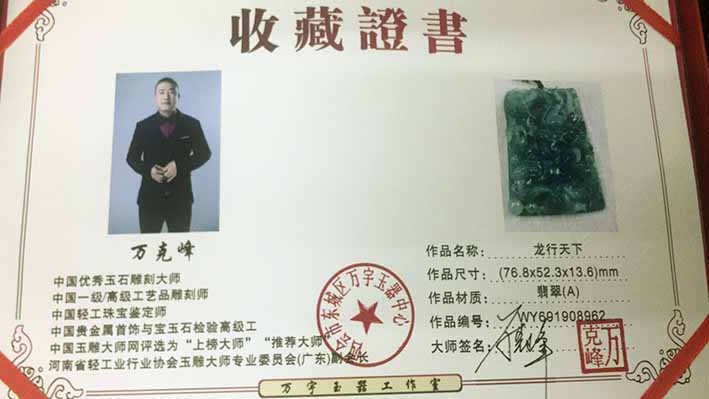 收藏證書
万克峰
中国优秀玉石雕刻大师
中国一级/高级工艺品雕刻师
中国轻工珠宝鉴定师
中国贵金属首饰与宝玉石检验高级工
中国玉雕大师网评选为“上榜大师” “推荐大师”
河南省轻工业行业协会玉雕大师专业委员会(广东)副会长
作品名称: 龙行天下
作品尺寸: (76.8x52.3x13.6)mm
作品材质: 翡翠(A)
作品编号: WY691908962
大师签名:
市东城区万宇玉器中心
万克峰
万宇玉器工作室